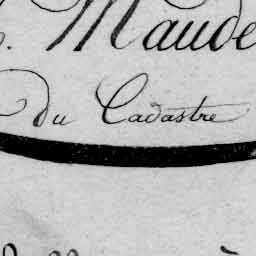 Maude
du Cadastre